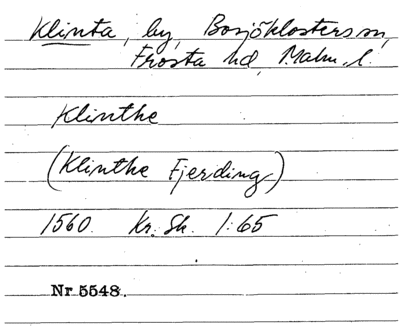 Klinta, by, Bosjöklosters sn,
Frosta hd, Malm. l.
Klinthe
(Klinthe Fjerding)
1560. Kr. Sk. 1:65
Nr 5548.